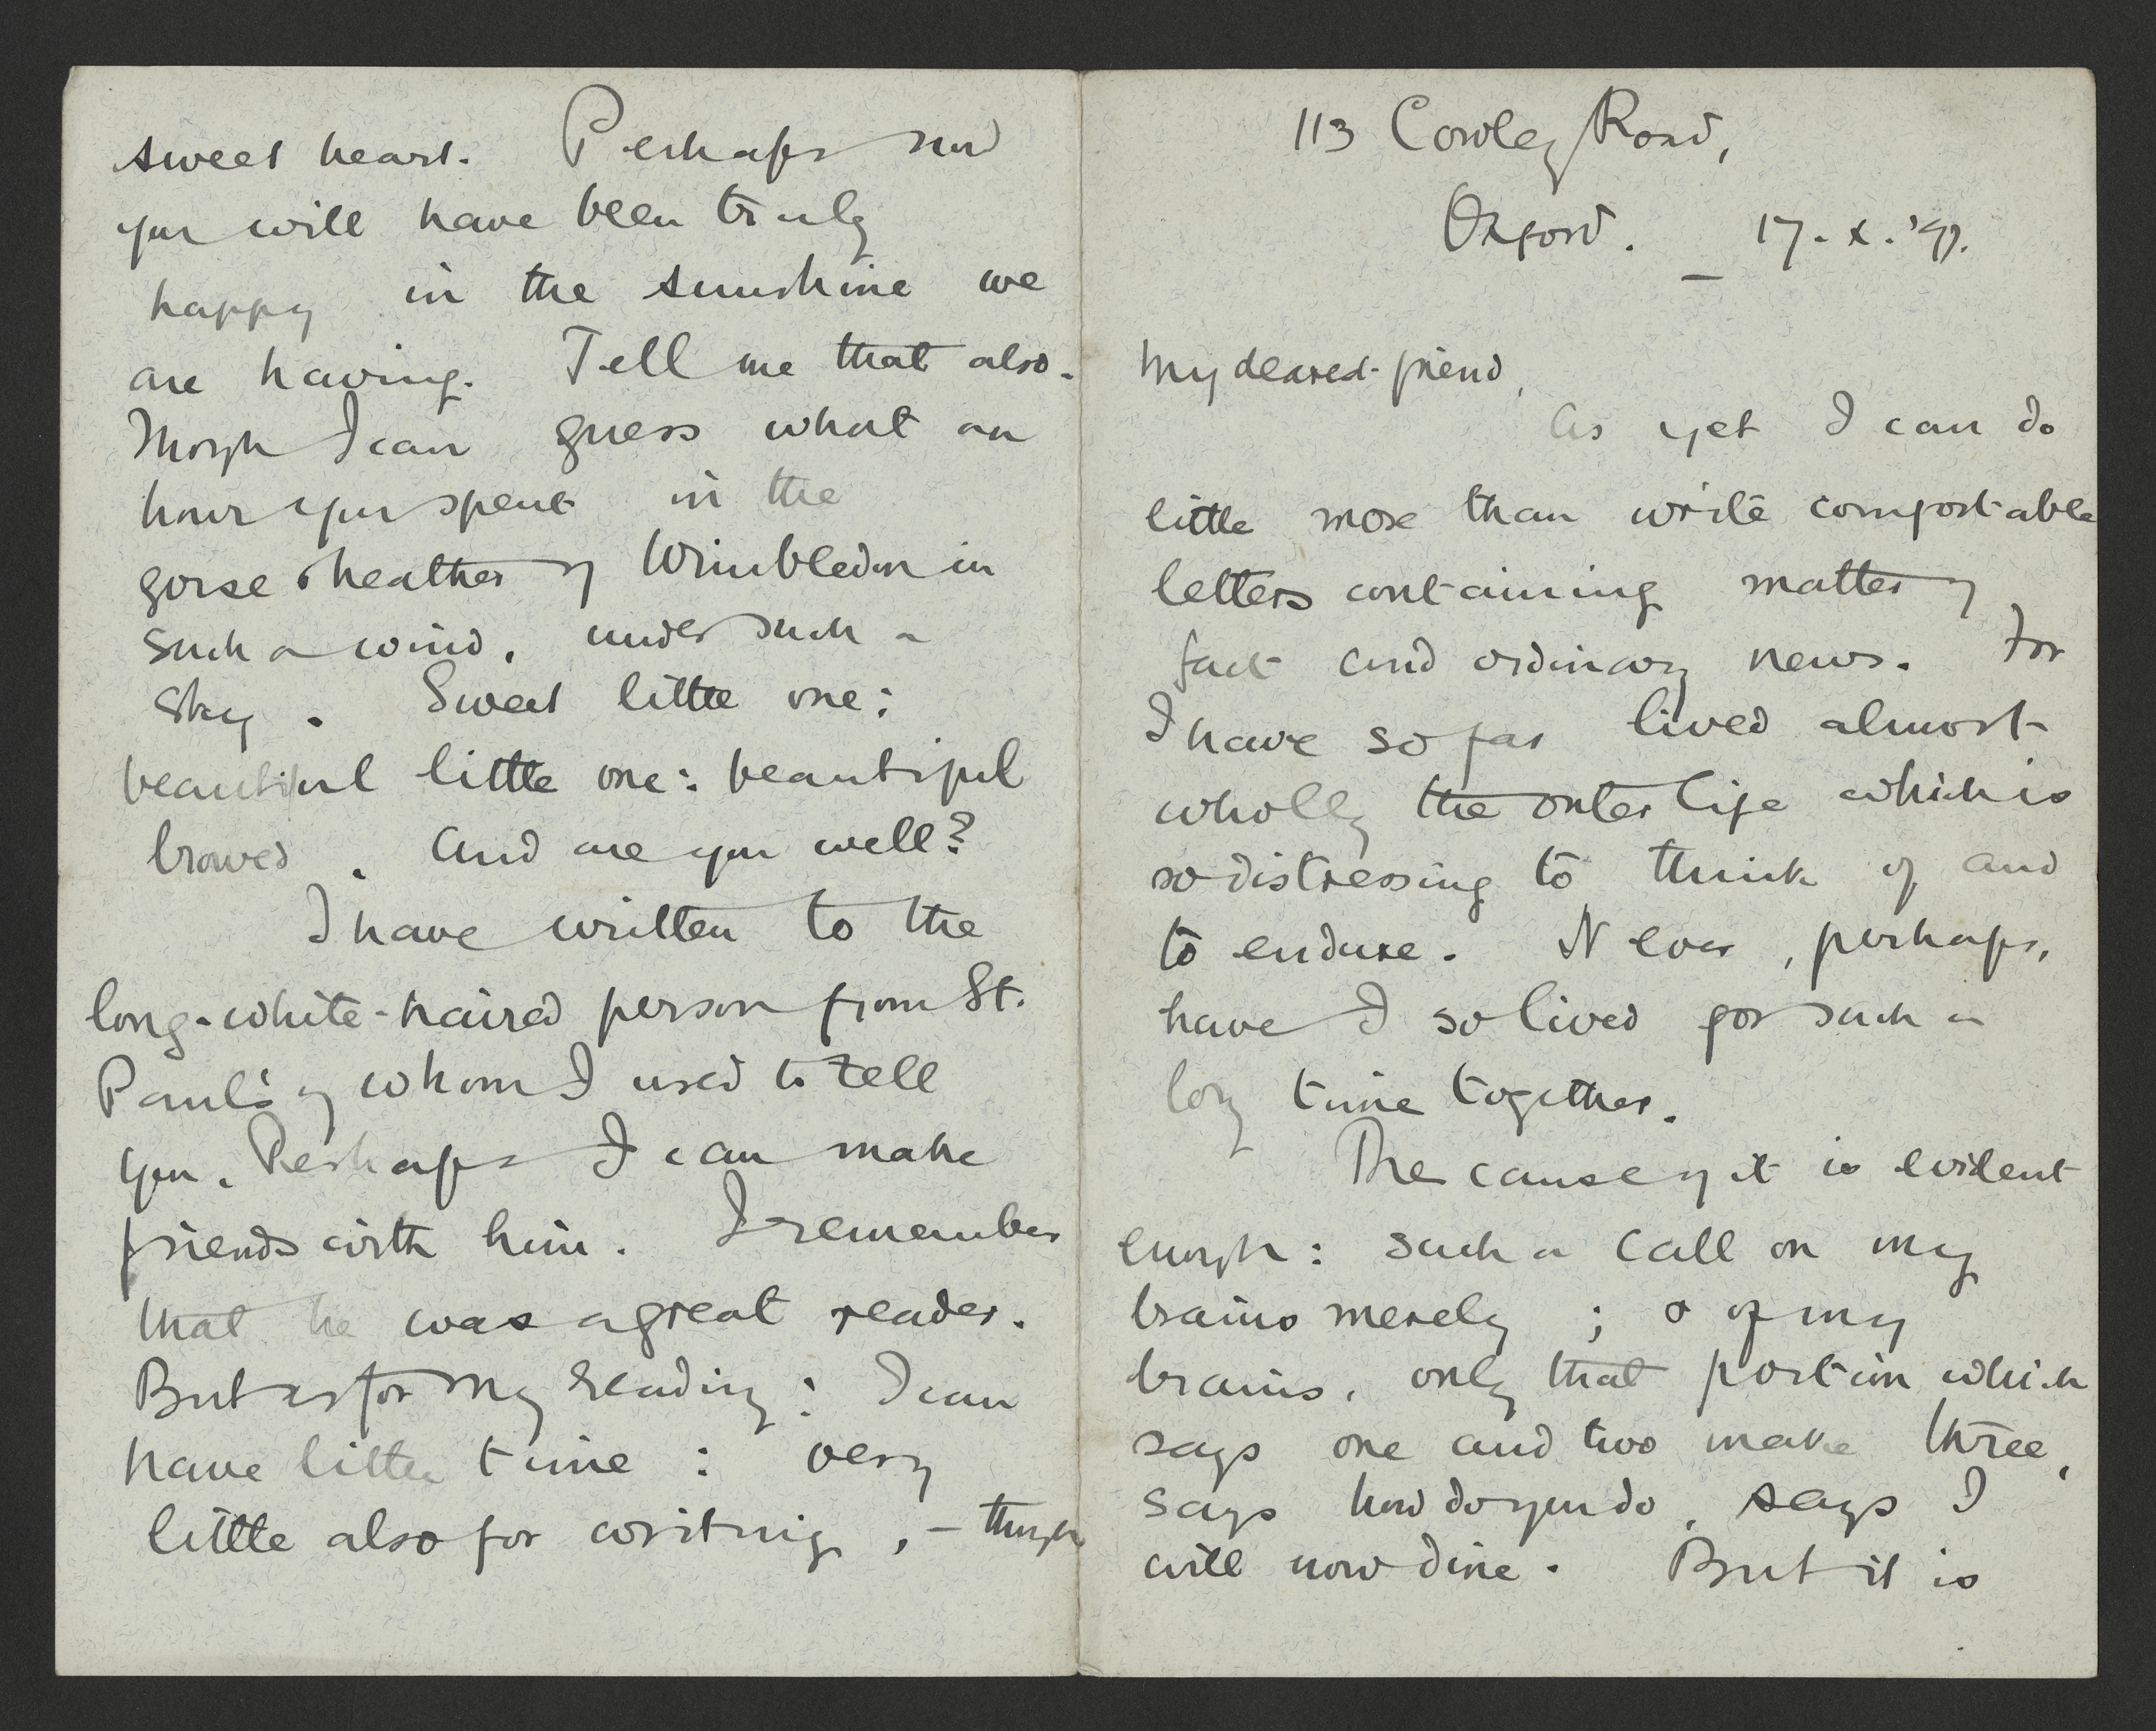 sweet heart. Perhaps now
you will have been truly
happy in the sunshine we
are having. Tell me that also.
Though I can guess what an
hour you spent in the
gorse & heather of Wimbledon in
such a wind, under such a
sky. Sweet little one:
beautiful little one: beautiful
browed. And are you well?
I have written to the
long-white-haired person from St.
Paul's of whom I used to tell
you. Perhaps I can make
friends with him. I remember
that he was a great reader.
But as for my reading: I can
have little time: very
little also for writing, – though
113 Cowley Road,
Oxford. _ 17. X. '97.
My dearest friend,
As yet I can do
little more than write comfortable
letters containing matter of
fact and ordinary news. For
I have so far lived almost
wholly the outer life which is
so distressing to think of and
to endure. Never, perhaps,
have I so lived for such a
long time together.
The cause of it is evident
enough: such a call on my
brains merely; & of my
brains, only that portion which
says one and two make three,
says how do you do, says I
will now dine. But it is